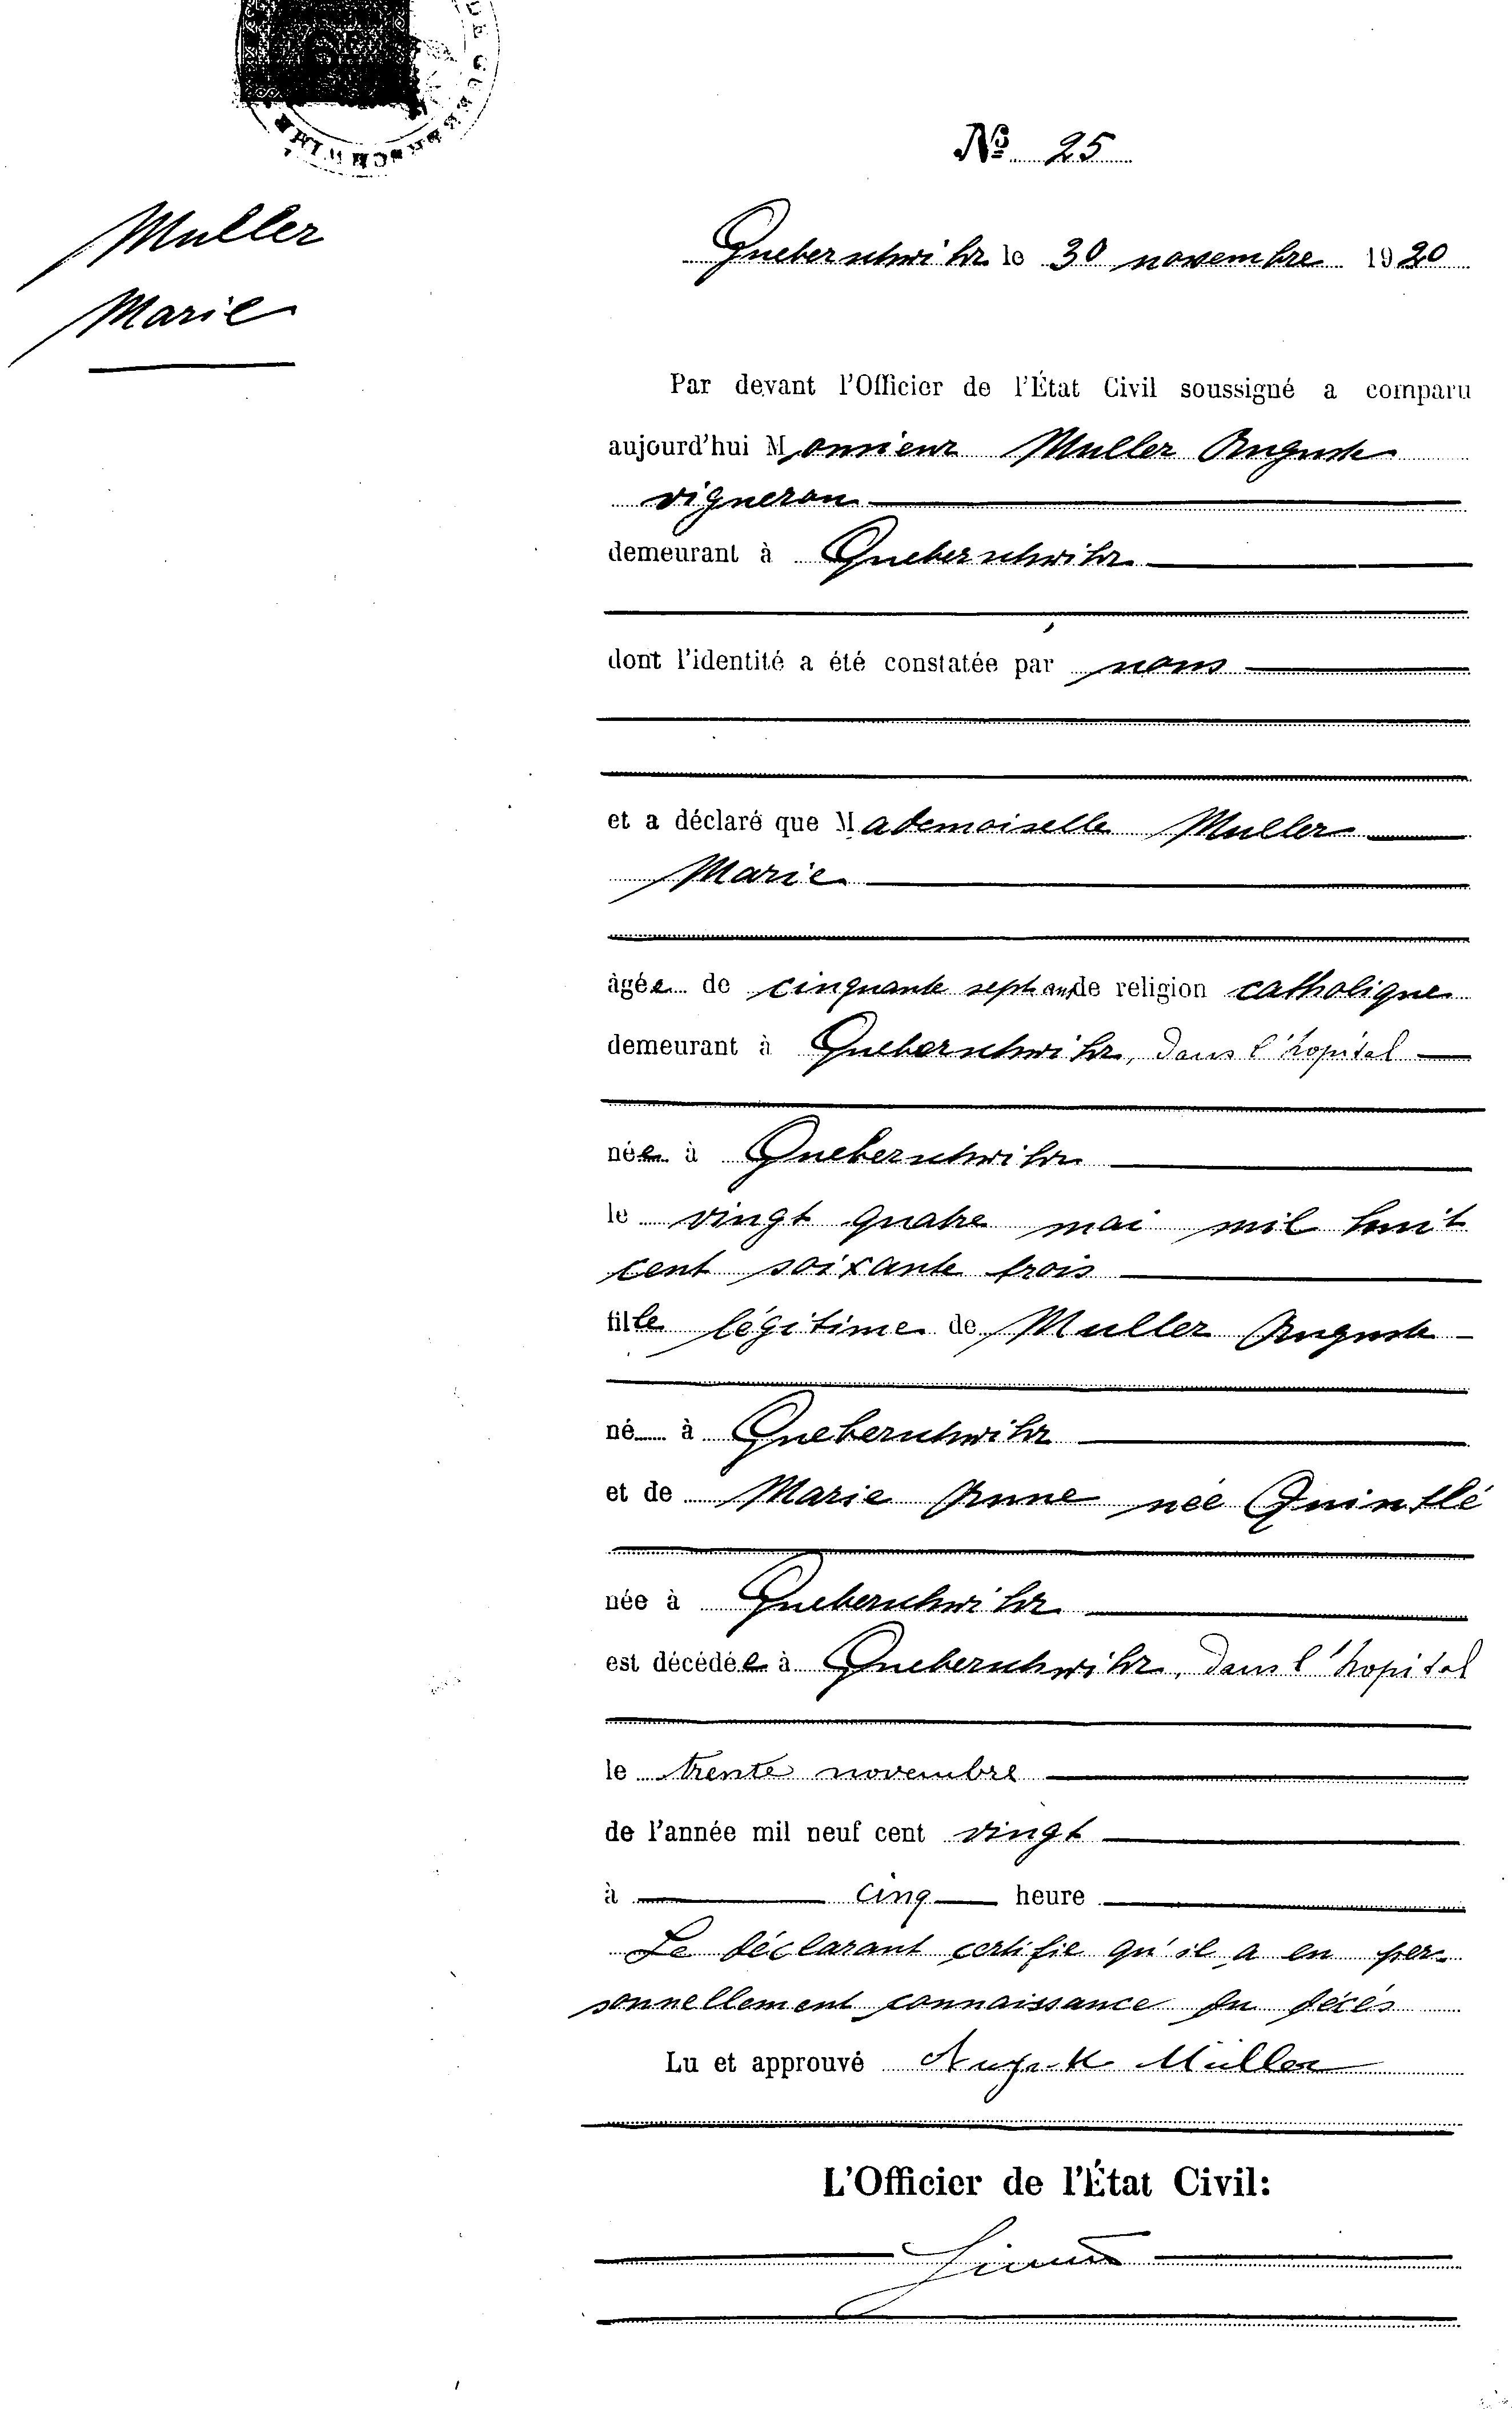 Muller
Marie
№ 25
Gueberschwihr le 30 novembre 1920
Par devant l'Officier de l'État Civil soussigné a comparu
aujourd'hui Monsieur Muller Auguste
vigneron
demeurant à Gueberschwihr
dont l'identité a été constatée par nous
et a déclaré que Mademoiselle Muller
Marie
âgée de cinquante sept ans de religion catholique
demeurant à Gueberschwihr, dans l'hopital
née à Gueberschwihr
le vingt quatre mai mil huit
cent soixante trois
fille légitime de Muller Auguste
né à Gueberschwihr
et de Marie Anne née
née à Gueberschwihr
est décédée à Gueberschwihr, dans l'hopital
le trente novembre
de l'année mil neuf cent vingt
à cinq heure
Le déclarant certifie qu'il a eu per-
sonnellement connaissance du décès
Lu et approuvé August Müller
L'Officier de l'État Civil: